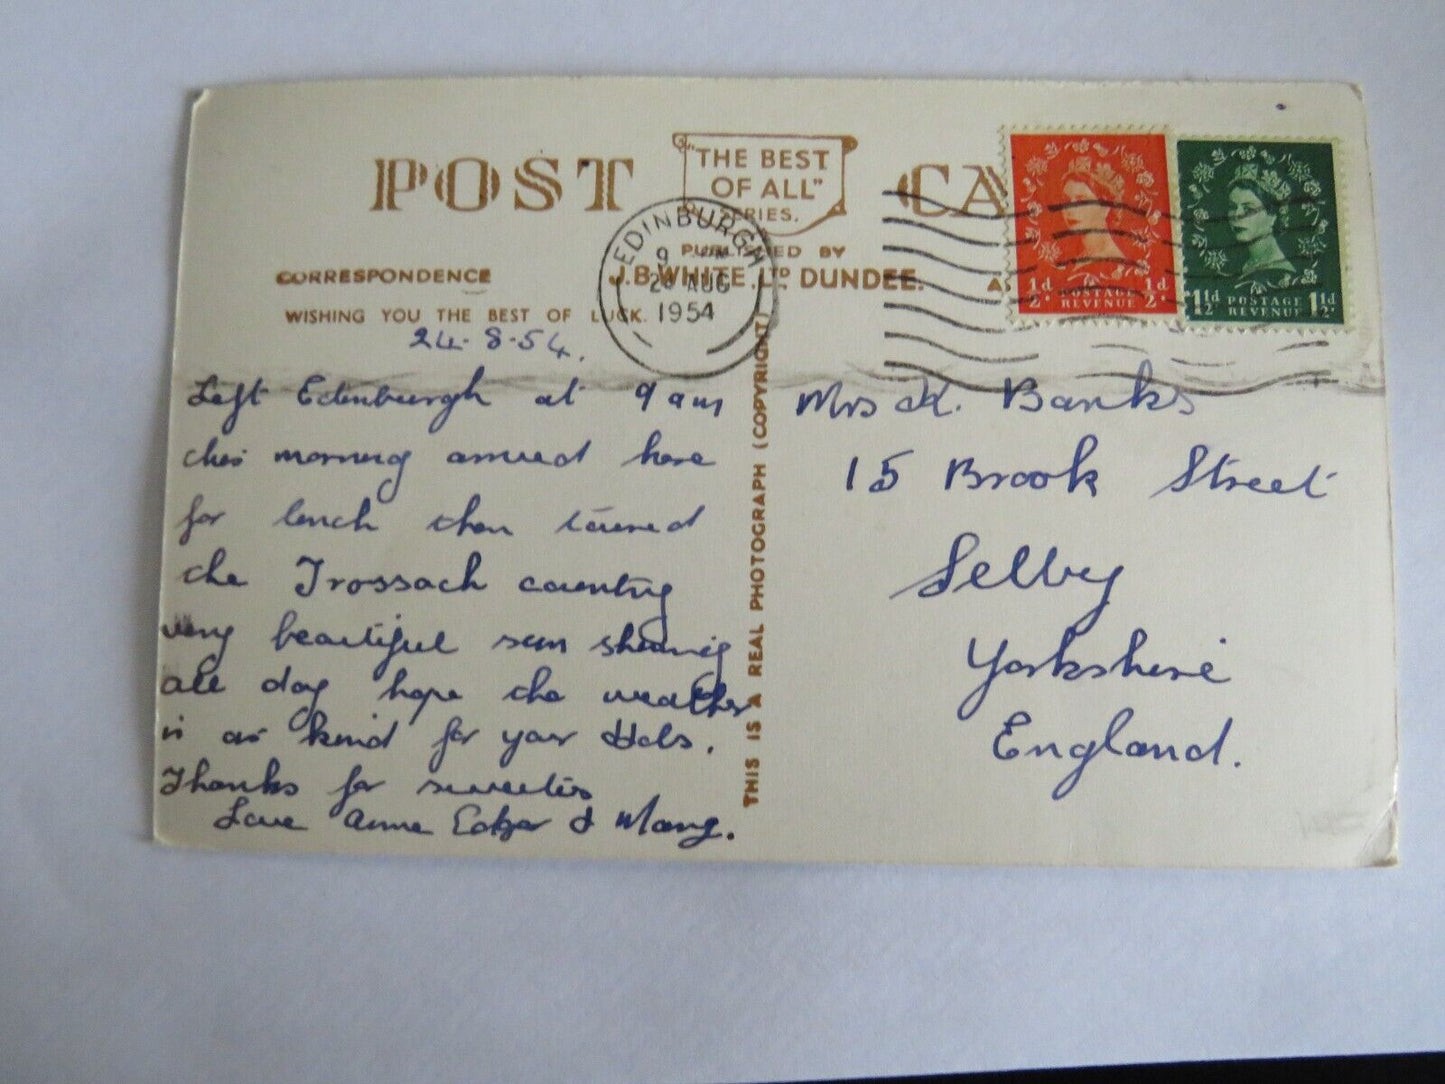 POST CA
"THE BEST
OF ALL"
SERIES.
PUBLISHED BY
J.B.WHITE. LTD DUNDEE.
CORRESPONDENCE
WISHING YOU THE BEST OF LUCK.
EDINBURGH
9
AUG
1954
1/2d 1/2d
POSTAGE
REVENUE
1 1/2d POSTAGE 1 1/2d
REVENUE
24.8.54.
Left Edinburgh at 9 am
this morning arrived here
for lunch then toured
the Trossach country
very beautiful sun shining
all day hope the weather
is as kind for your Hols.
Thanks for sweeties
Love Anne Edgar & Mary.
THIS IS A REAL PHOTOGRAPH (COPYRIGHT)
Mrs K. Banks
15 Brook Street
Selby
Yorkshire
England.